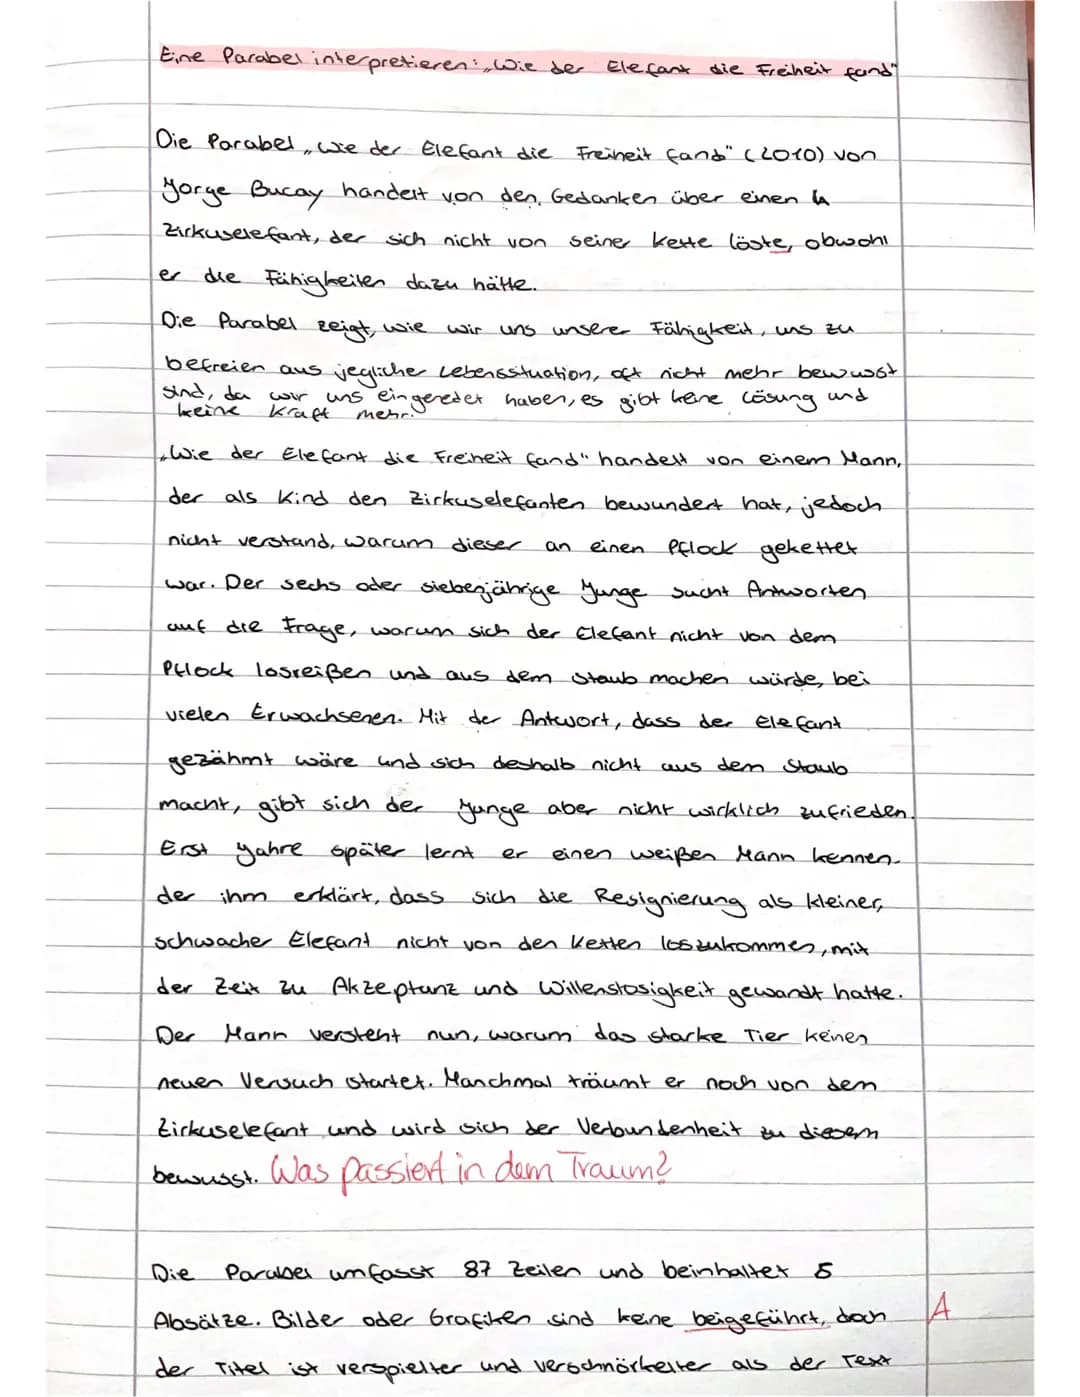 Eine Parabel interpretieren: „Wie der Elefant die Freiheit fand"
Die Parabel „Wie der Elefant die Freiheit fand" (2010) von
Jorge Bucay handelt von den Gedanken über einen
Zirkuselefant, der sich nicht von seiner Kette löste, obwohl
er die Fähigkeiten dazu hätte.
Die Parabel zeigt, wie wir uns unserer Fähigkeit, uns zu
befreien aus jeglicher Lebenssituation, oft nicht mehr bewusst
sind, da wir uns eingeredet haben, es gibt keine Lösung und
keine Kraft mehr.
„Wie der Elefant die Freiheit fand" handelt von einem Mann,
der als Kind den Zirkuselefanten bewundert hat, jedoch
nicht verstand, warum dieser an einen Pflock gekettet
war. Der sechs oder siebenjährige Junge sucht Antworten
auf die Frage, warum sich der Elefant nicht von dem
Pflock losreißen und aus dem Staub machen würde, bei
vielen Erwachsenen. Mit der Antwort, dass der Elefant
gezähmt wäre und sich deshalb nicht aus dem Staub
macht, gibt sich der Junge aber nicht wirklich zufrieden.
Erst Jahre später lernt er einen weißen Mann kennen
der ihm erklärt, dass sich die Resignierung als kleiner,
schwacher Elefant nicht von den Ketten loszukommen, mit
der Zeit zu Akzeptanz und Willenslosigkeit gewandt hatte.
Der Mann versteht nun, warum das starke Tier keinen
neuen Versuch startet. Manchmal träumt er noch von dem
Zirkuselefant und wird sich der Verbundenheit zu diesem
bewusst. Was passiert in dem Traum?
Die Parabel umfasst 87 Zeilen und beinhaltet 5
Absätze. Bilder oder Grafiken sind keine beigeführt, doch A
der Titel ist verspielter und verschnörkelter als der Text